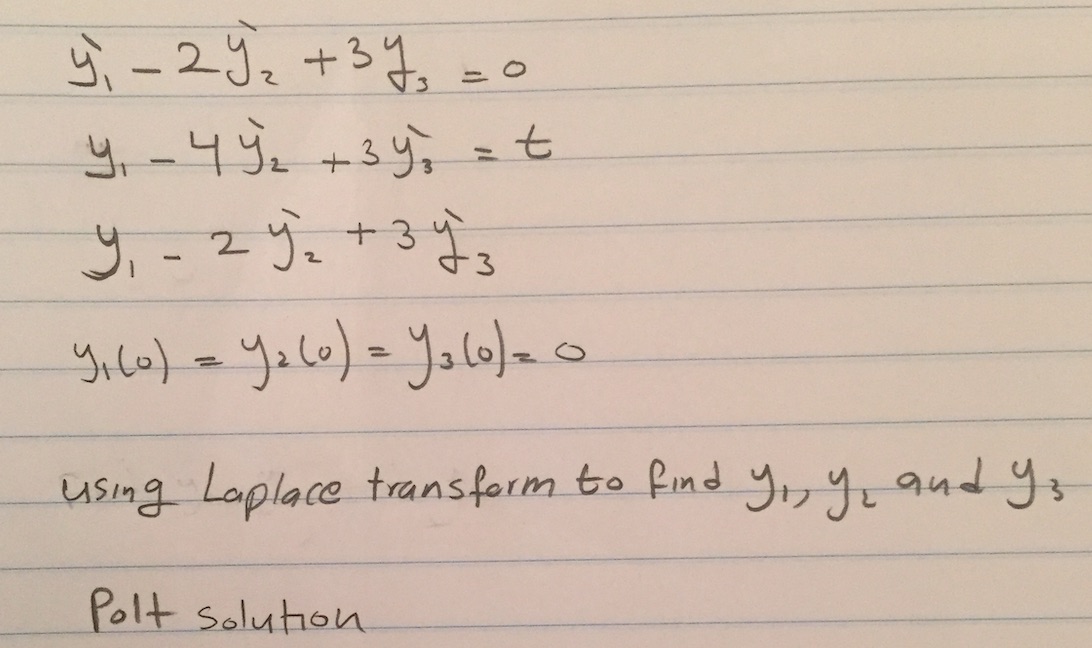 ẏ₁ - 2ẏ₂ + 3y₃ = 0
y₁ - 4ẏ₂ + 3ẏ₃ = t
y₁ - 2ẏ₂ + 3ẏ₃
y₁(0) = y₂(0) = y₃(0) = 0
using Laplace transform to find y₁, y₂ and y₃
Polt solution